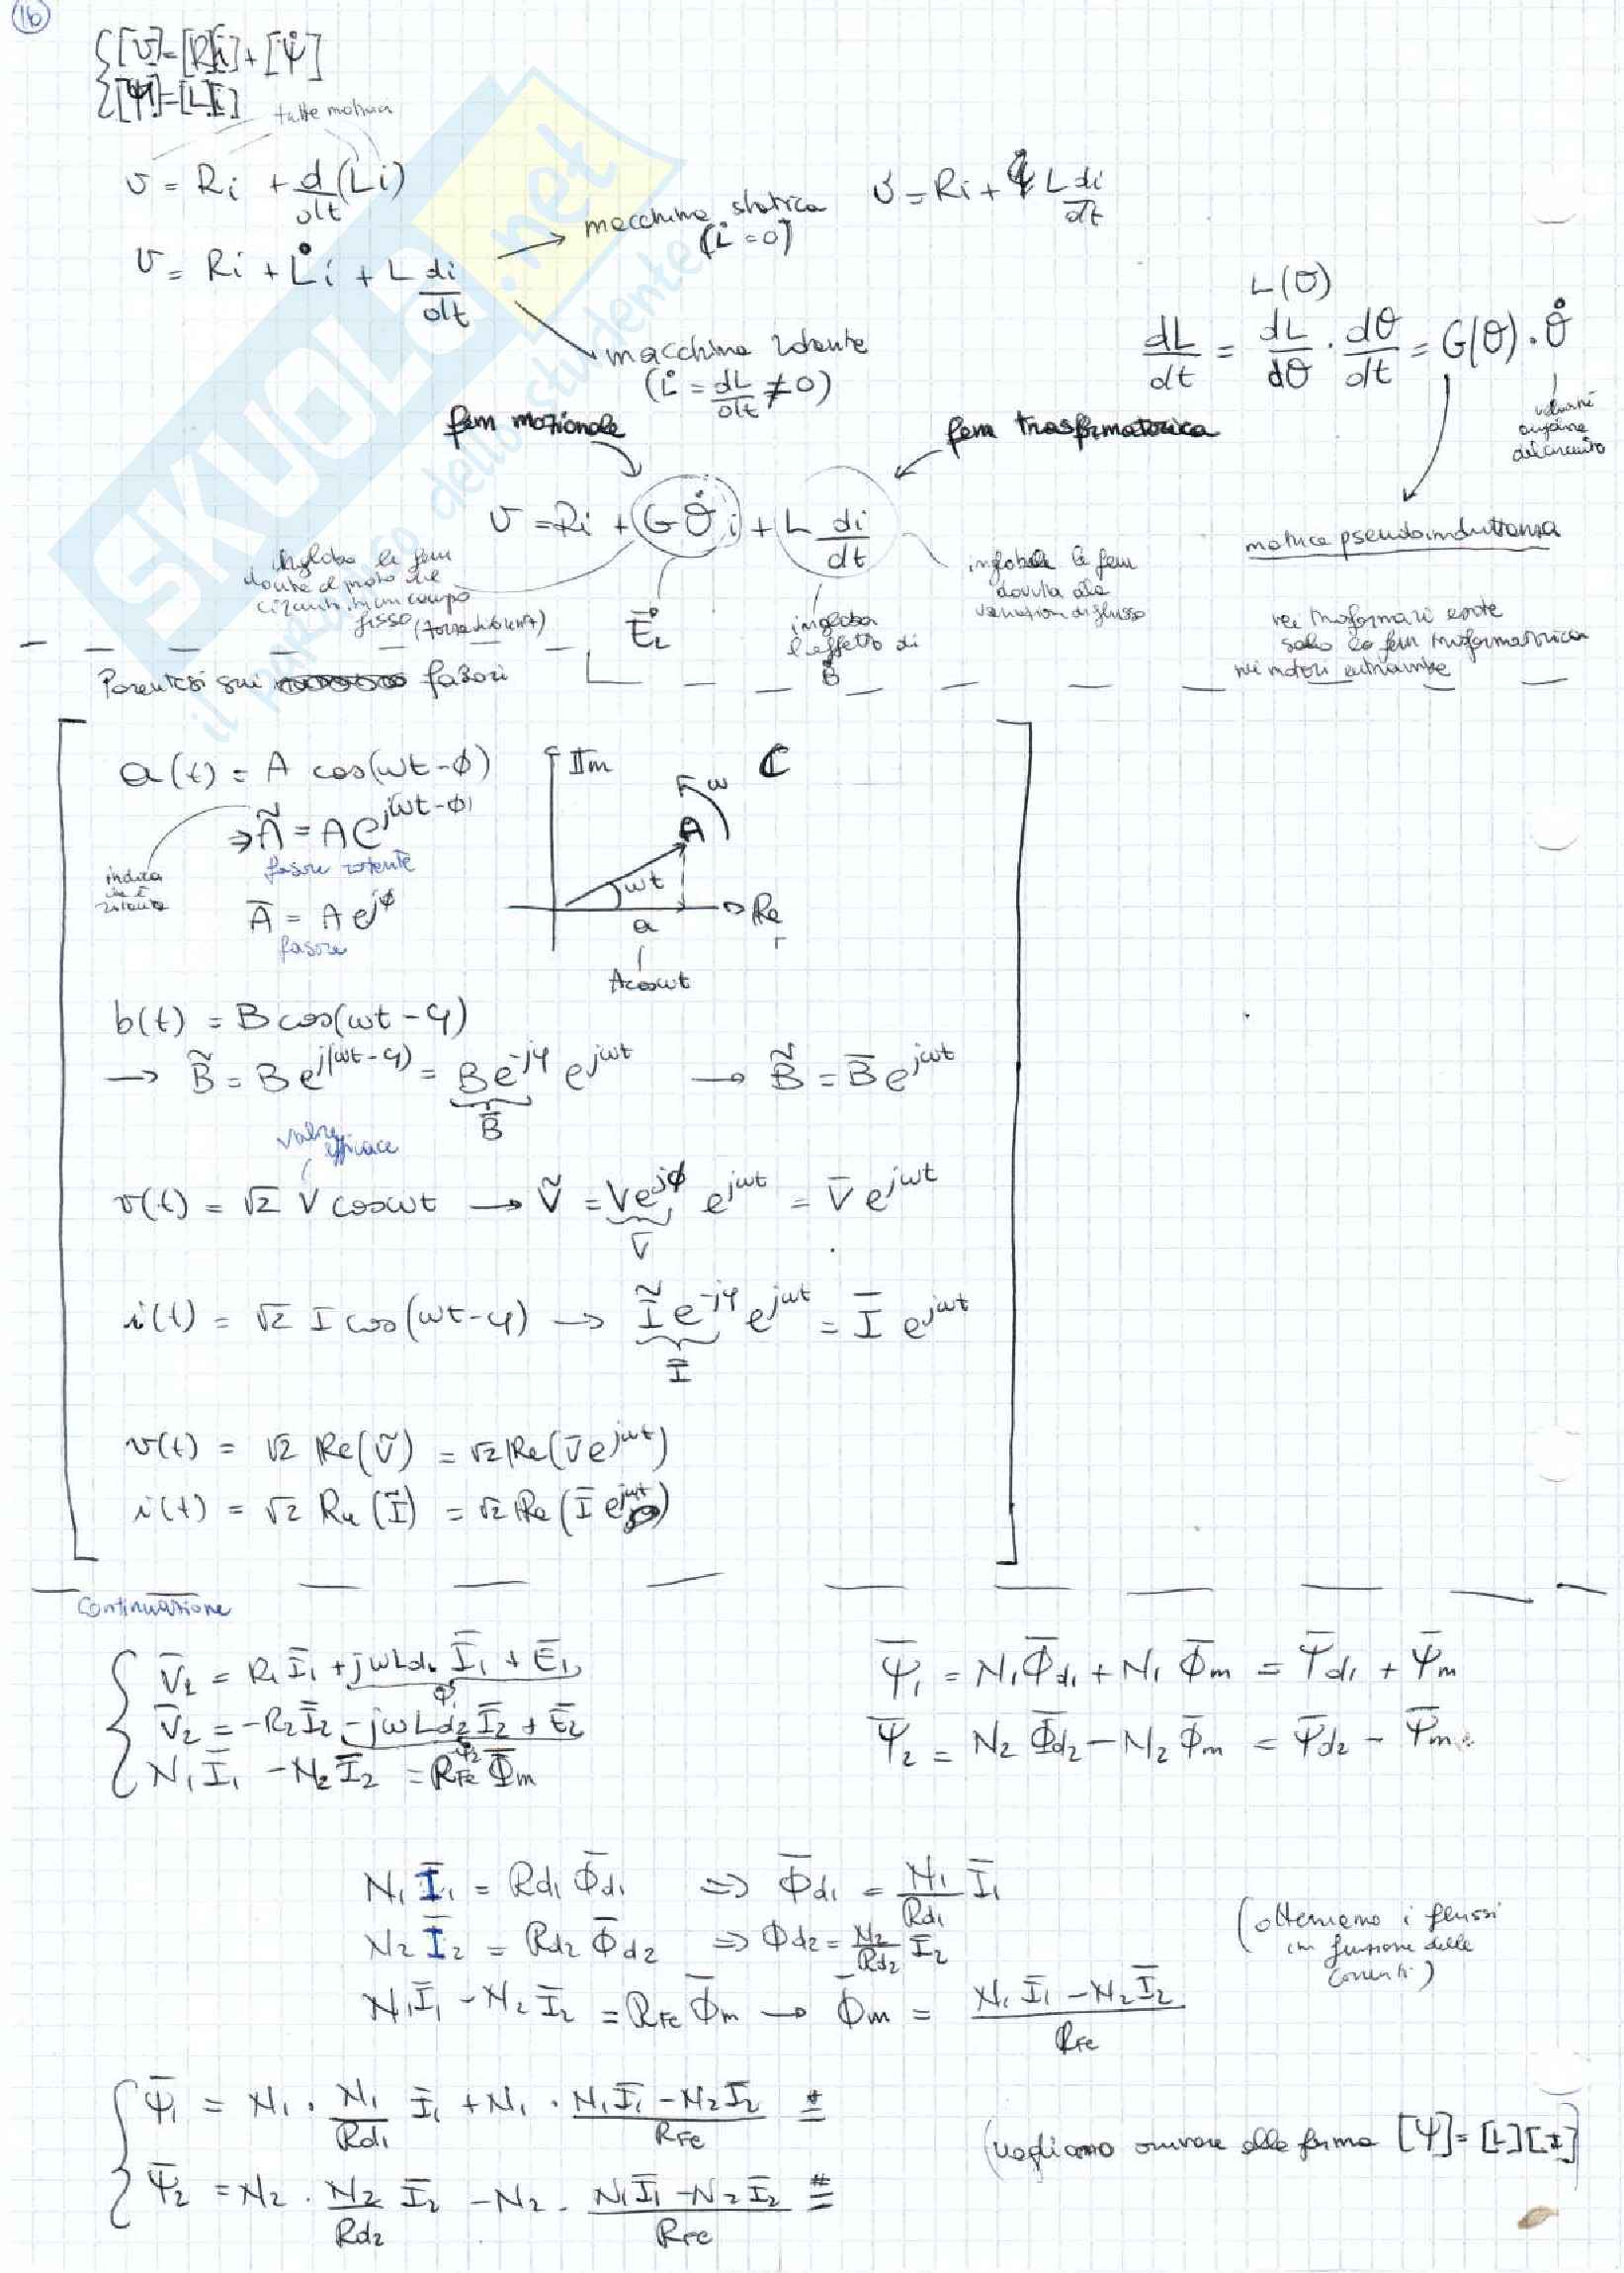 16
{ [v]=[R][i]+[Ψ̇]
{ [Ψ]=[L][I]
tutte matrici
v = Ri + d/dt (Li)
v = Ri + L̇i + L di/dt
macchina statica
(L̇ = 0)
v = Ri + L di/dt
macchina rotante
(L̇ = dL/dt ≠ 0)
L(θ)
dL/dt = dL/dθ · dθ/dt = G(θ) · θ̇
del circuito
matrice pseudoinduttanza
fem mozionale
fem trasformatorica
v = Ri + Gθ̇i + L di/dt
ingloba le fem
dovute al moto del
circuito in un campo
fisso
ingloba
l'effetto di
Ḃ
ingloba le fem
dovuta alla
variazioni di flusso
nei trasformatori esiste
solo la fem trasformatorica
nei motori entrambe
Parentesi sui fasori
a(t) = A cos(ωt-ϕ)
⇒ Ã = A e^j(ωt-ϕ)
fasore rotante
indica
che è
rotante
A̅ = A e^jϕ
fasore
Im
ℂ
ω
A
ωt
Re
a
Acosωt
b(t) = B cos(ωt - φ)
→ B̃ = B e^j(ωt-φ) = B e^-jφ e^jωt → B̃ = B̅ e^jωt
B̅
valore
efficace
v(t) = √2 V cosωt → Ṽ = V e^jϕ e^jωt = V̅ e^jωt
V̅
i(t) = √2 I cos(ωt-φ) → Ĩ e^-jφ e^jωt = I̅ e^jωt
I̅
v(t) = √2 Re(Ṽ) = √2 Re(V̅ e^jωt)
i(t) = √2 Re(Ĩ) = √2 Re(I̅ e^jωt)
Continuazione
V̅₁ = R₁ I̅₁ + jωLd₁ I̅₁ + E̅₁
V̅₂ = -R₂ I̅₂ - jωLd₂ I̅₂ + E̅₂
N₁ I̅₁ - N₂ I̅₂ = R_Fe Φ̅m
Ψ̅₁ = N₁ Φ̅d₁ + N₁ Φ̅m = Ψ̅d₁ + Ψ̅m
Ψ̅₂ = N₂ Φ̅d₂ - N₂ Φ̅m = Ψ̅d₂ - Ψ̅m
N₁ I̅₁ = Rd₁ Φ̅d₁ ⇒ Φ̅d₁ = N₁/Rd₁ I̅₁
N₂ I̅₂ = Rd₂ Φ̅d₂ ⇒ Φd₂ = N₂/Rd₂ I̅₂
(otteniamo i flussi
in funzione delle
correnti)
N₁ I̅₁ - N₂ I̅₂ = R_Fe Φ̅m → Φ̅m = (N₁ I̅₁ - N₂ I̅₂)/R_Fe
Ψ̅₁ = N₁ · N₁/Rd₁ I̅₁ + N₁ · (N₁ I̅₁ - N₂ I̅₂)/R_Fe *=
Ψ̅₂ = N₂ · N₂/Rd₂ I̅₂ - N₂ · (N₁ I̅₁ - N₂ I̅₂)/R_Fe #=
(vogliamo arrivare alla forma [Ψ]=[L][I])
SKUOLA.net
il paradiso dello studente